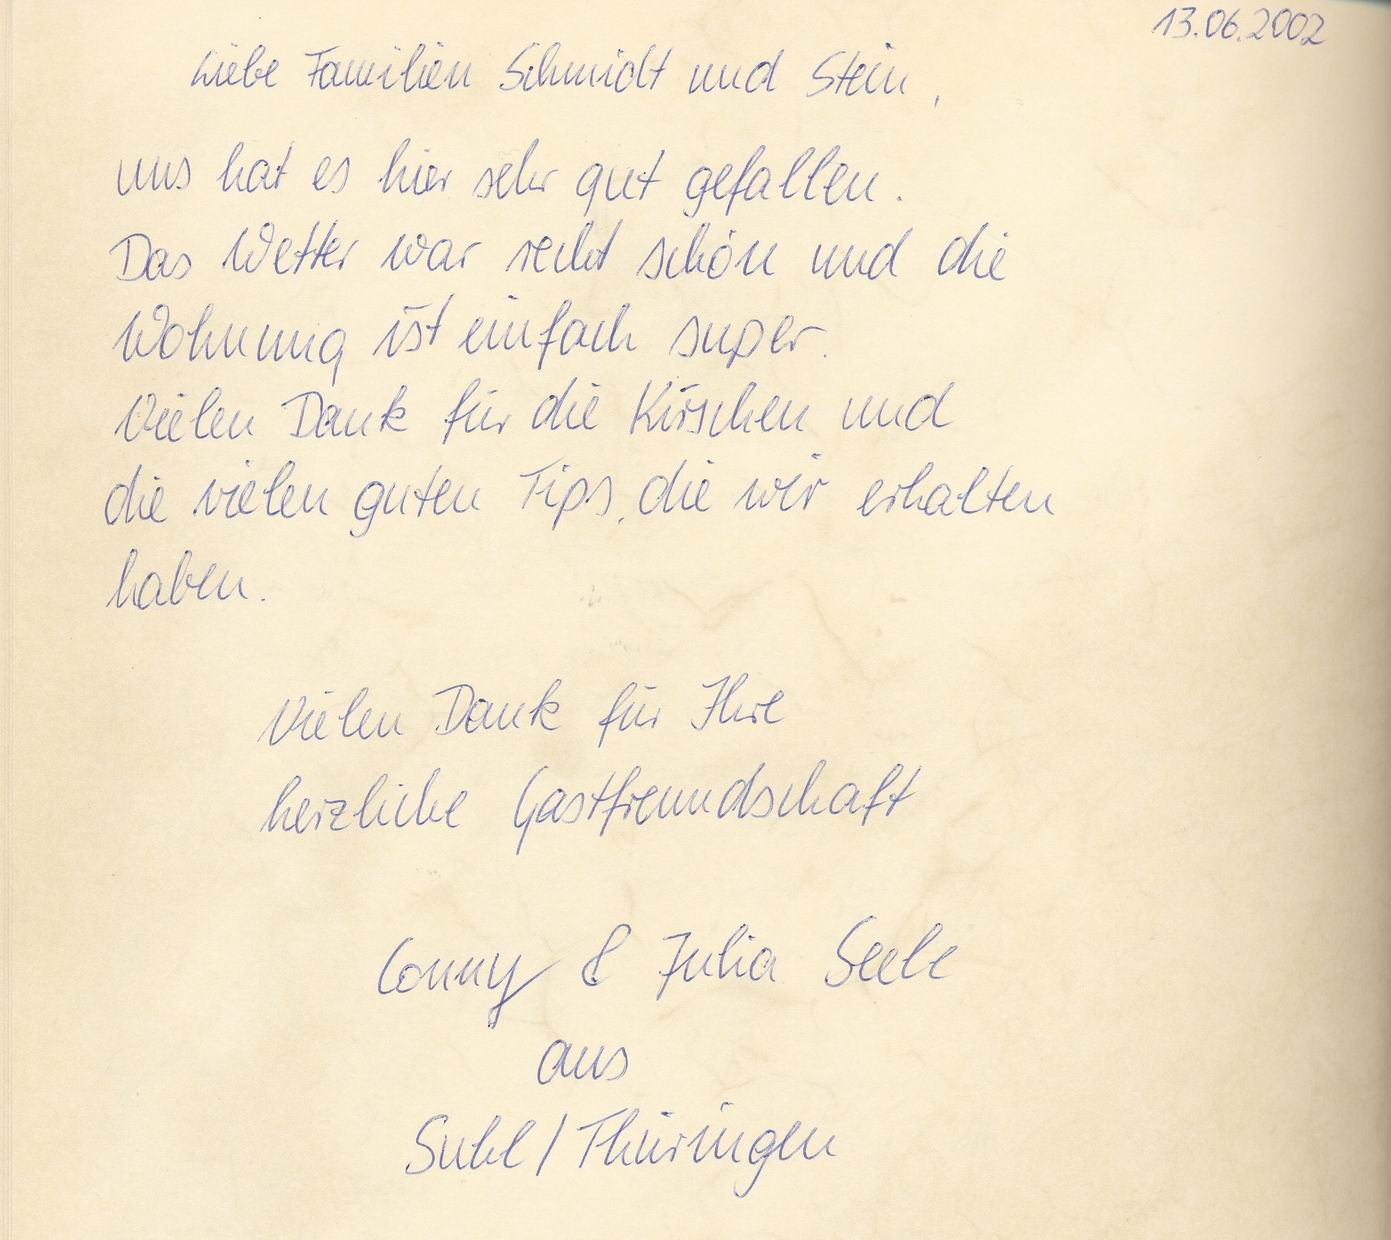 13.06.2002
Liebe Familien Schmidt und Stein,
uns hat es hier sehr gut gefallen.
Das Wetter war recht schön und die
Wohnung ist einfach super.
Vielen Dank für die Kirschen und
die vielen guten Tips, die wir erhalten
haben.
Vielen Dank für Ihre
herzliche Gastfreundschaft
Conny & Julia Seele
aus
Suhl/Thüringen